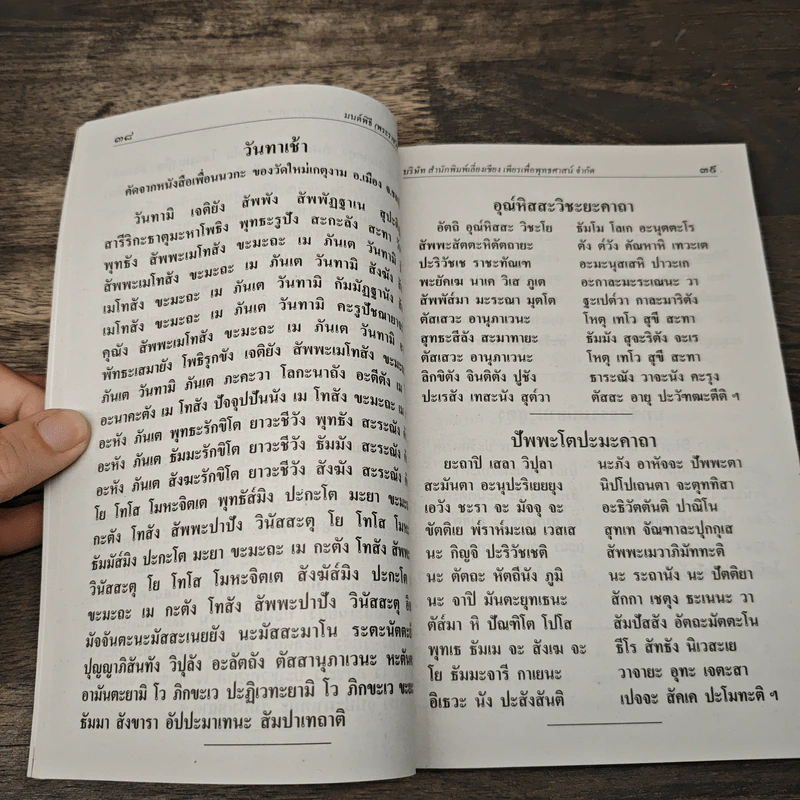 ๓๘
มนต์พิธี
วันทาเช้า
คัดจากหนังสือเพื่อนนวกะ ของวัดใหม่เกตุงาม อ.เมือง
วันทามิ เจติยัง สัพพัง สัพพัฏฐาเน
สารีริกะธาตุมะหาโพธิง พุทธะรูปัง สะกะลัง สะทา
พุทธัง สัพพะเมโทสัง ขะมะถะ เม ภันเต วันทามิ
สัพพะเมโทสัง ขะมะถะ เม ภันเต วันทามิ สังฆัง
เมโทสัง ขะมะถะ เม ภันเต วันทามิ กัมมัฏฐานัง
เมโทสัง ขะมะถะ เม ภันเต วันทามิ
คุณัง สัพพะเมโทสัง ขะมะถะ เม ภันเต วันทามิ
พัทธะเสมายัง โพธิรุกขัง เจติยัง สัพพะเมโทสัง
ภันเต วันทามิ ภันเต ภะคะวา โลกะนาถัง อะตีตัง เม
อะนาคะตัง เม โทสัง ปัจจุปปันนัง เม โทสัง ขะมะถะ เม
อะหัง ภันเต พุทธะรักขิโต ยาวะชีวัง พุทธัง สะระณัง
อะหัง ภันเต ธัมมะรักขิโต ยาวะชีวัง ธัมมัง สะระณัง
อะหัง ภันเต สังฆะรักขิโต ยาวะชีวัง สังฆัง สะระณัง
โย โทโส โมหะจิตเต พุทธัส๎มิง ปะกะโต มะยา
กะตัง โทสัง สัพพะปาปัง วินัสสะตุ โย โทโส
ธัมมัส๎มิง ปะกะโต มะยา ขะมะถะ เม กะตัง โทสัง
วินัสสะตุ โย โทโส โมหะจิตเต สังฆัส๎มิง ปะกะโต
ขะมะถะ เม กะตัง โทสัง สัพพะปาปัง วินัสสะตุ
มัจจันตะนะมัสสะเนยยัง นะมัสสะมาโน
ปุญญาภิสันทัง วิปุลัง อะลัตถัง ตัสสานุภาเวนะ
อามันตะยามิ โว ภิกขะเว ปะฏิเวทะยามิ โว ภิกขะเว
ธัมมา สังขารา อัปปะมาเทนะ สัมปาเทถาติ
บริษัท สำนักพิมพ์เลี่ยงเชียง เพียรเพื่อพุทธศาสน์ จำกัด ๓๙
อุณ๎หิสสะวิชะยะคาถา
อัตถิ อุณ๎หิสสะ วิชะโย ธัมโม โลเก อะนุตตะโร
สัพพะสัตตะหิตัตถายะ ตัง ต๎วัง คัณหาหิ เทวะเต
ปะริวัชเช ราชะทัณเฑ อะมะนุสเสหิ ปาวะเก
พะยัคเฆ นาเค วิเส ภูเต อะกาละมะระเณนะ วา
สัพพัส๎มา มะระณา มุตโต ฐะเปต๎วา กาละมาริตัง
ตัสเสวะ อานุภาเวนะ โหตุ เทโว สุขี สะทา
สุทธะสีลัง สะมาทายะ ธัมมัง สุจะริตัง จะเร
ตัสเสวะ อานุภาเวนะ โหตุ เทโว สุขี สะทา
ลิกขิตัง จินติตัง ปูชัง ธาระณัง วาจะนัง คะรุง
ปะเรสัง เทสะนัง สุต๎วา ตัสสะ อายุ ปะวัฑฒะตีติ ฯ
ปัพพะโตปะมะคาถา
ยะถาปิ เสลา วิปุลา นะภัง อาหัจจะ ปัพพะตา
สะมันตา อะนุปะริเยยยุง นิปโปเถนตา จะตุททิสา
เอวัง ชะรา จะ มัจจุ จะ อะธิวัตตันติ ปาณิโน
ขัตติเย พ๎ราห๎มะเณ เวสเส สุทเท จัณฑาละปุกกุเส
นะ กิญจิ ปะริวัชเชติ สัพพะเมวาภิมัททะติ
นะ ตัตถะ หัตถีนัง ภูมิ นะ ระถานัง นะ ปัตติยา
นะ จาปิ มันตะยุทเธนะ สักกา เชตุง ธะเนนะ วา
ตัส๎มา หิ ปัณฑิโต โปโส สัมปัสสัง อัตถะมัตตะโน
พุทเธ ธัมเม จะ สังเฆ จะ ธีโร สัทธัง นิเวสะเย
โย ธัมมะจารี กาเยนะ วาจายะ อุทะ เจตะสา
อิเธวะ นัง ปะสังสันติ เปจจะ สัคเค ปะโมทะติ ฯ